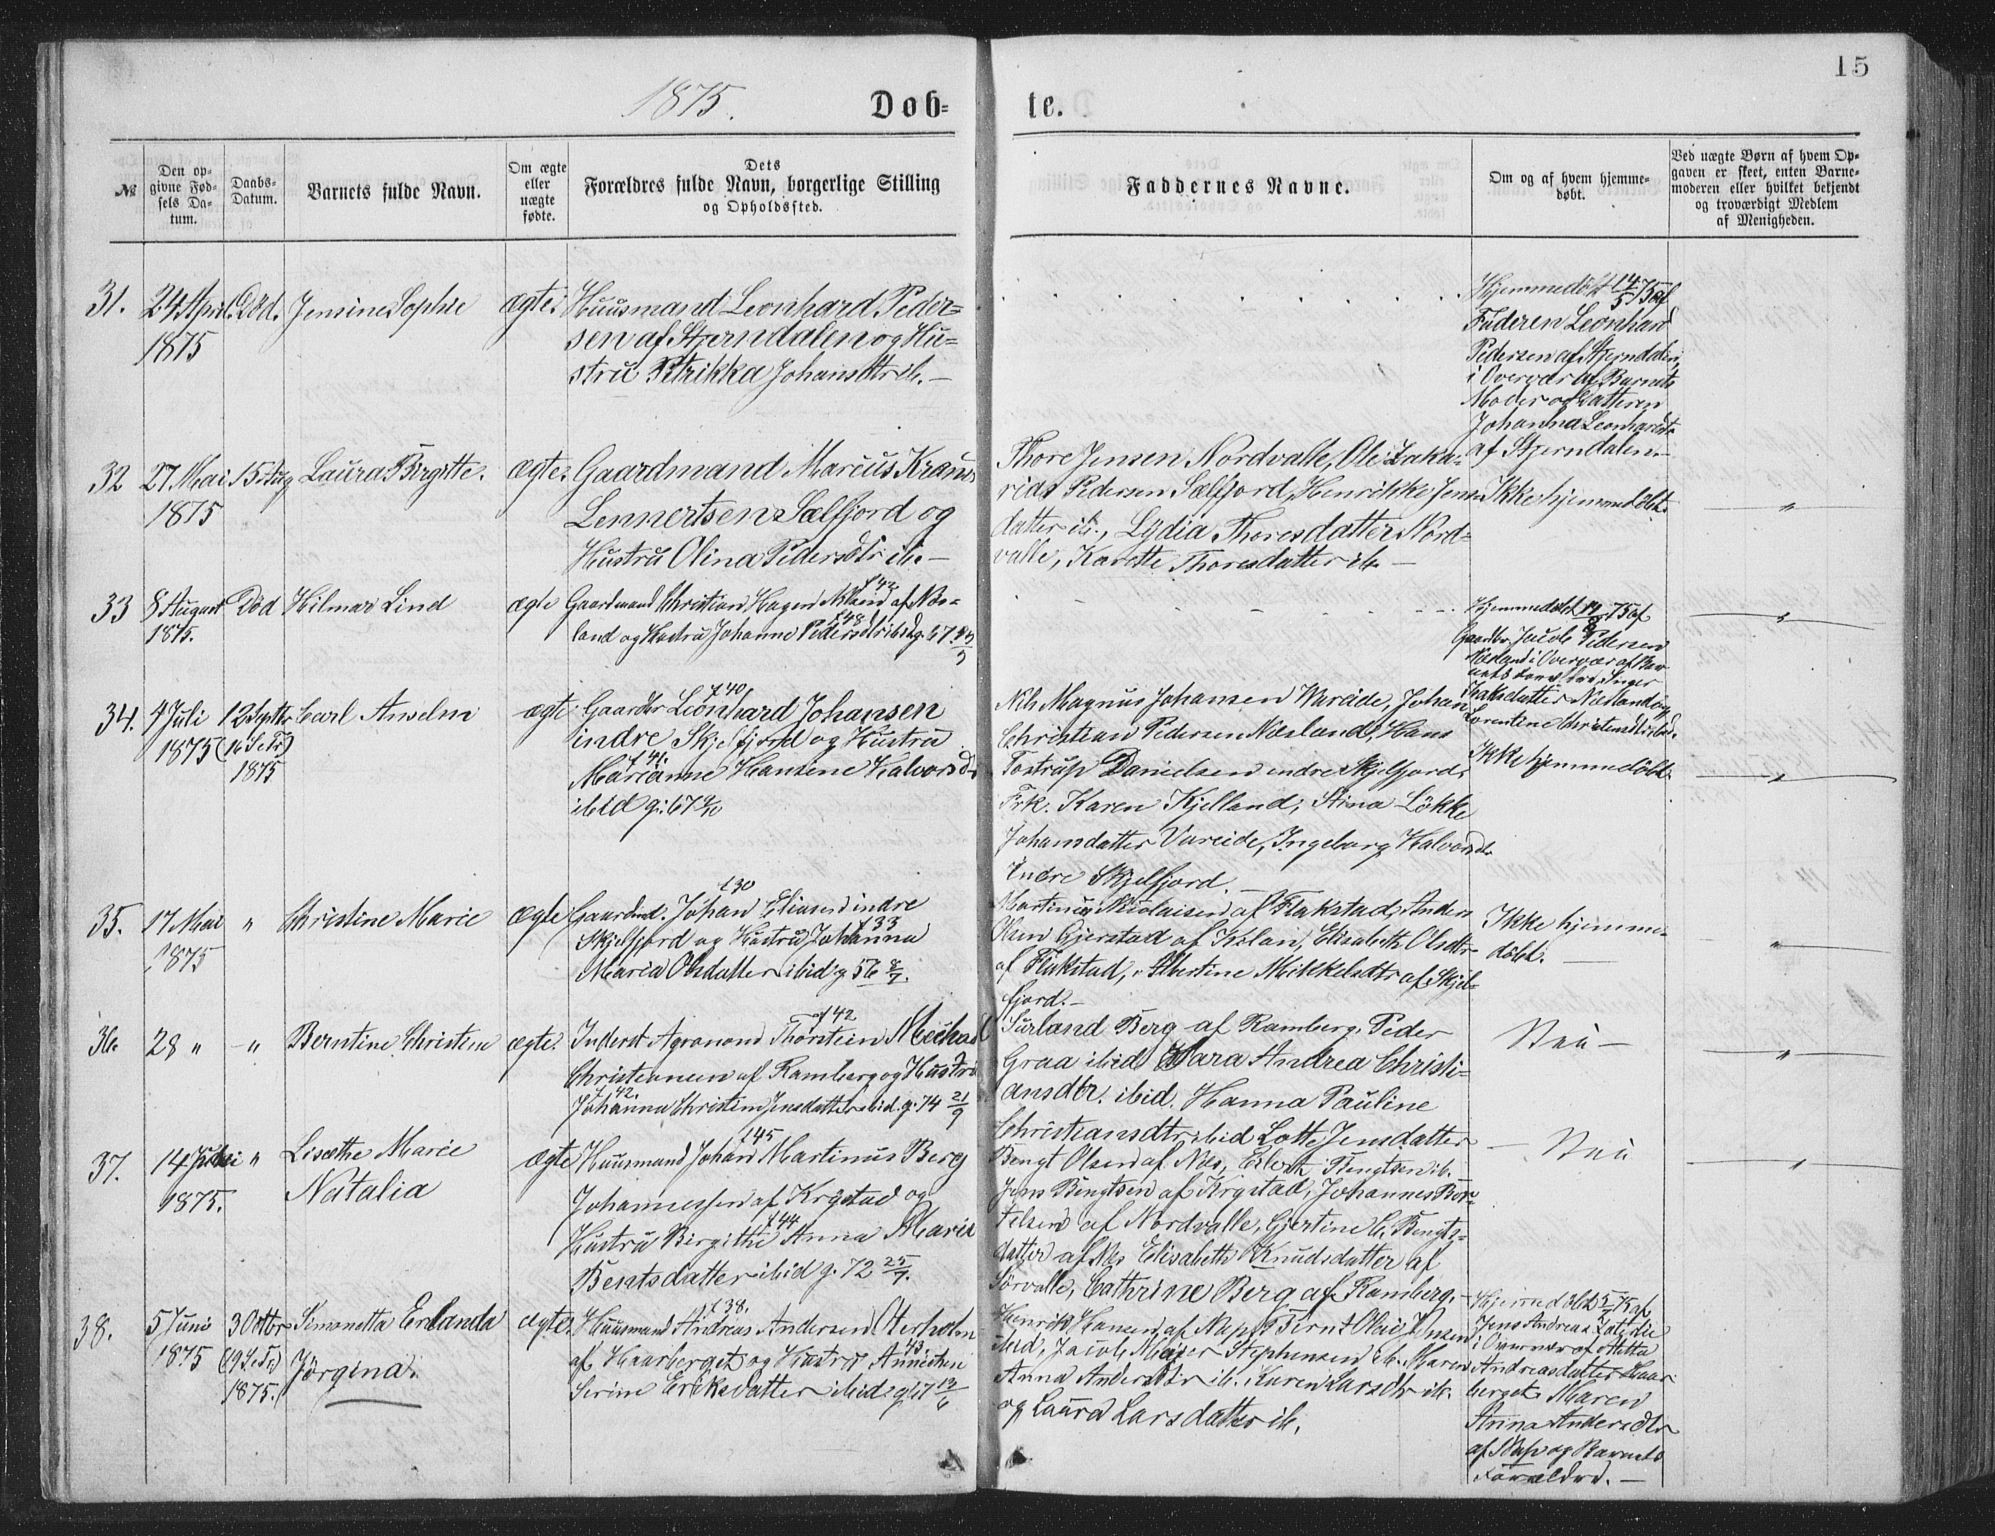 15
1875.
Døb-
te.
№
Den op-
givne Fød-
sels Da-
tum.
Daabs-
Datum.
Barnets fulde Navn.
Om ægte
eller
uægte
fødte.
Dets
Forældres fulde Navn, borgerlige Stilling
og Opholdssted.
Faddernes Navne.
Om og af hvem hjemme-
døbt.
Ved uægte Børn af hvem Op-
gaven er skeet, enten Barne-
moderen eller hvilket bekjendt
og troværdigt Medlem
af Menigheden.
31.
24 April
1875
Død.
Jensine Sophie
ægte.
Huusmand Leonhard Peder-
sen af Stjerndalen og Hu-
stru Petrikka Johansdtr ib. -
Hjemmedøbt 14/5 75 af
Faderen Leonhard
Pedersen af Stjerndalen,
i Overvær af Barnets
Moder og Datteren
Johanna Leonhardsdr
af Stjerndalen.-
32
27 Mai
1875
15 Aug
Laura Birgitte.
ægte.
Gaardmand Marcus Kraus
Lennertsen Sælfjord og
Hustru Olina Pedersdtr ib. -
Thore Jensen Nordvalle, Ole Zaka-
rias Pedersen Sælfjord, Henrikke Jens-
datter ib., Lydia Thoresdatter Nord-
valle, Karette Thoresdatter ib. -
Ikke hjemmedøbt.
"
33
8 August
1875.
Død
Hilmar Lind
ægte
f 42
Gaardmand Christian Hagen Nesland af Nes-
f 48
land og Hustru Johanne Pedersdtr ibd g. 67
Hjemmedøbt 14/8 75 af
Gaardbr Jacob Pedersen
Nesland i Overvær af Bar-
Inger
Isaksdatter Nesland og
Lorentine Christensdtr ibd.
"
34.
4 Juli
1875
12 Septbr
(16 S. e. Tr.)
1875
Carl Anselm
ægte
f 40
Gaardbr Leonhard Johansen
indre Skjelfjord og Hustru
f 41.
Marianne Hansine Halvorsdr
ibid g. 67
Nils Magnus Johansen Vareide, Johan
Christian Pedersen Nesland, Hans
Tostrup Danielsen indre Skjelfjord,
Frk. Karen Kjelland, Stina Løkke
Johansdatter Vareide, Ingeborg Halvorsdr
Indre Skjelfjord. -
Ikke hjemmedøbt.
"
35.
17 Mai
1875
"
Christine Marie
ægte
f 30
Gaardmd. Johan Eliasen indre
f 33
Skjelfjord og Hustru Johanna
Maria Olsdatter ibid g. 56 8/7.
Martinus Nicolaisen af Flakstad, Anders
Olsen Gjerstad af Kilan, Elisabeth Olsdtr
af Flakstad, Albertine Mikkelsdtr af Skjel-
fjord. -
Ikke hjemme-
døbt. -
"
36.
28 "
"
Berntine Christine
ægte.
af 42
Inderst Agronom Thorstein Michael
Christiansen af Ramberg og Hustru
f 42.
Johanna Christine Jensdatter ibid. g. 74 21/9
Surland Berg af Ramberg, Peder
Graa ibid Clara Andrea Christi-
ansdtr. ibid. Hanna Pauline
Christiansdtr ibid Lotte Jensdatter
Nei -
"
37.
14 Juli
1875.
"
Lisæthe Marie
Natalia
ægte
f 45
Huusmand Johan Martinus Berg
Johannessen af Krystad og
f 44
Hustru Birgithe Anna Marie
Bentsdatter ibid g. 72 25/7.
Bengt Olsen af Næs, Eilert Bengtsen ib.
Jens Bengtsen af Krystad, Johannes Ber-
telsen af Nordvalle, Gjertine C. Bengts-
datter af Næs Elisabeth Knudsdatter af
Sørvalle, Cathrine Berg af Ramberg. -
- Nei
"
38.
5 Juni
1875
3 Octbr
(19 S. e. Tr.)
1875.
Simonetta Erlanda
Jørgina.
ægte.
f 38.
Huusmand Andreas Andersen Osterholm
f 43
af Haarberget og Hustru Annichen
Serine Eriksdatter ibid g. 67 13/6
Henrik Hansen af Nap, Bernt Olai Jensen
ibid, Jacob Meier Stephensen ib. Maren
Anna Andersdtr ib. Karen Larsdtr ib.
og Laura Larsdatter ib.
Hjemmedøbt 5/7 75 af
Jens Andreas
i Overvær af Metta
Andreasdatter Haar-
berget, Maren
Anna Andersdtr
af Nap og Barnets
Forældre. -